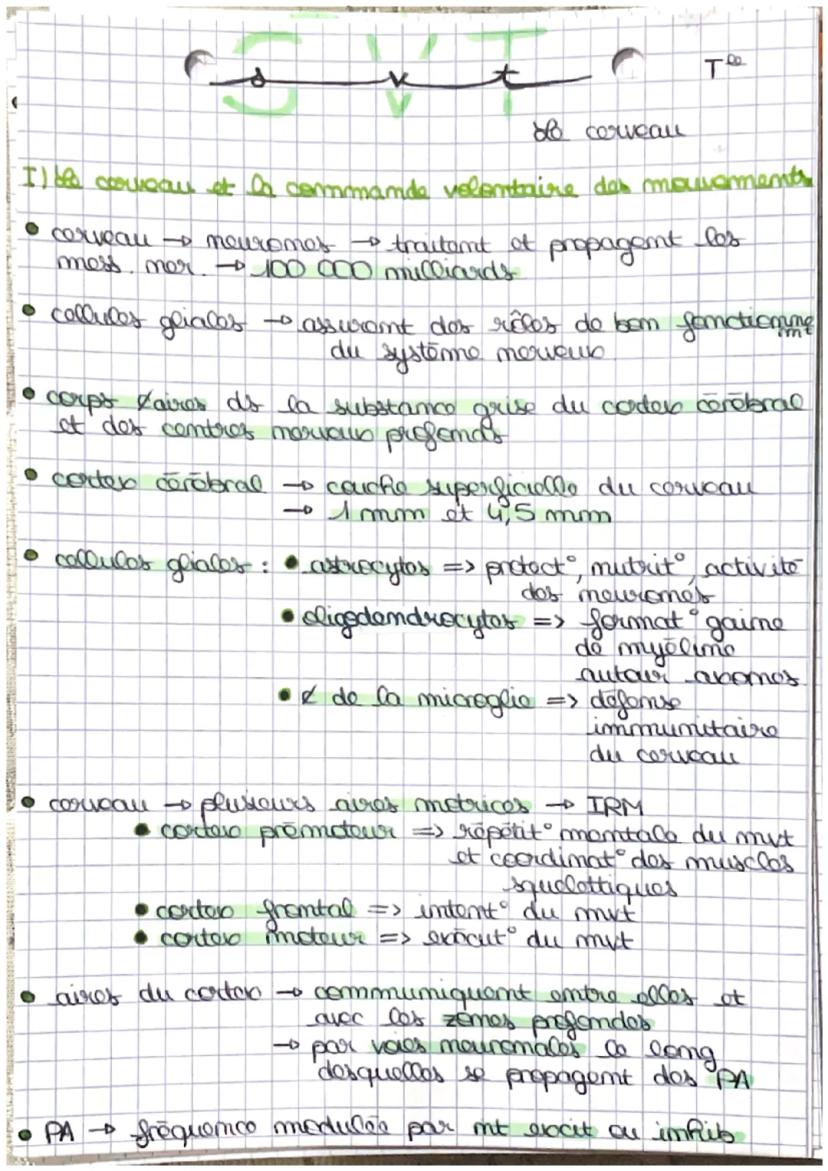 SVT
s v t
Tle
Le cerveau
I) Le cerveau et la commande volontaire des mouvements
• cerveau → neurones → traitent et propagent les
mess. ner. → 100 000 milliards
• cellules gliales → assurent des rôles de bon fonctionne
mt
du système nerveux
• corps ¢aires ds la substance grise du cortex cérébral
et des centres nerveux profonds
• cortex cérébral → couche superficielle du cerveau
→ 1 mm et 4,5 mm
• cellules gliales : • astrocytes => protect°, nutrit°, activité
des neurones
• oligodendrocytes => format° gaine
de myéline
autour axones
• ¢ de la microglie => défense
immunitaire
du cerveau
• cerveau → plusieurs aires motrices → IRM
• cortex prémoteur => répétit° mentale du mvt
et coordinat° des muscles
squelettiques
• cortex frontal => intent° du mvt
• cortex moteur => exécut° du mvt
• aires du cortex → communiquent entre elles et
avec les zones profondes
→ par voies neuronales le long
desquelles se propagent des PA
• PA → fréquence modulée par nt excit ou inhib